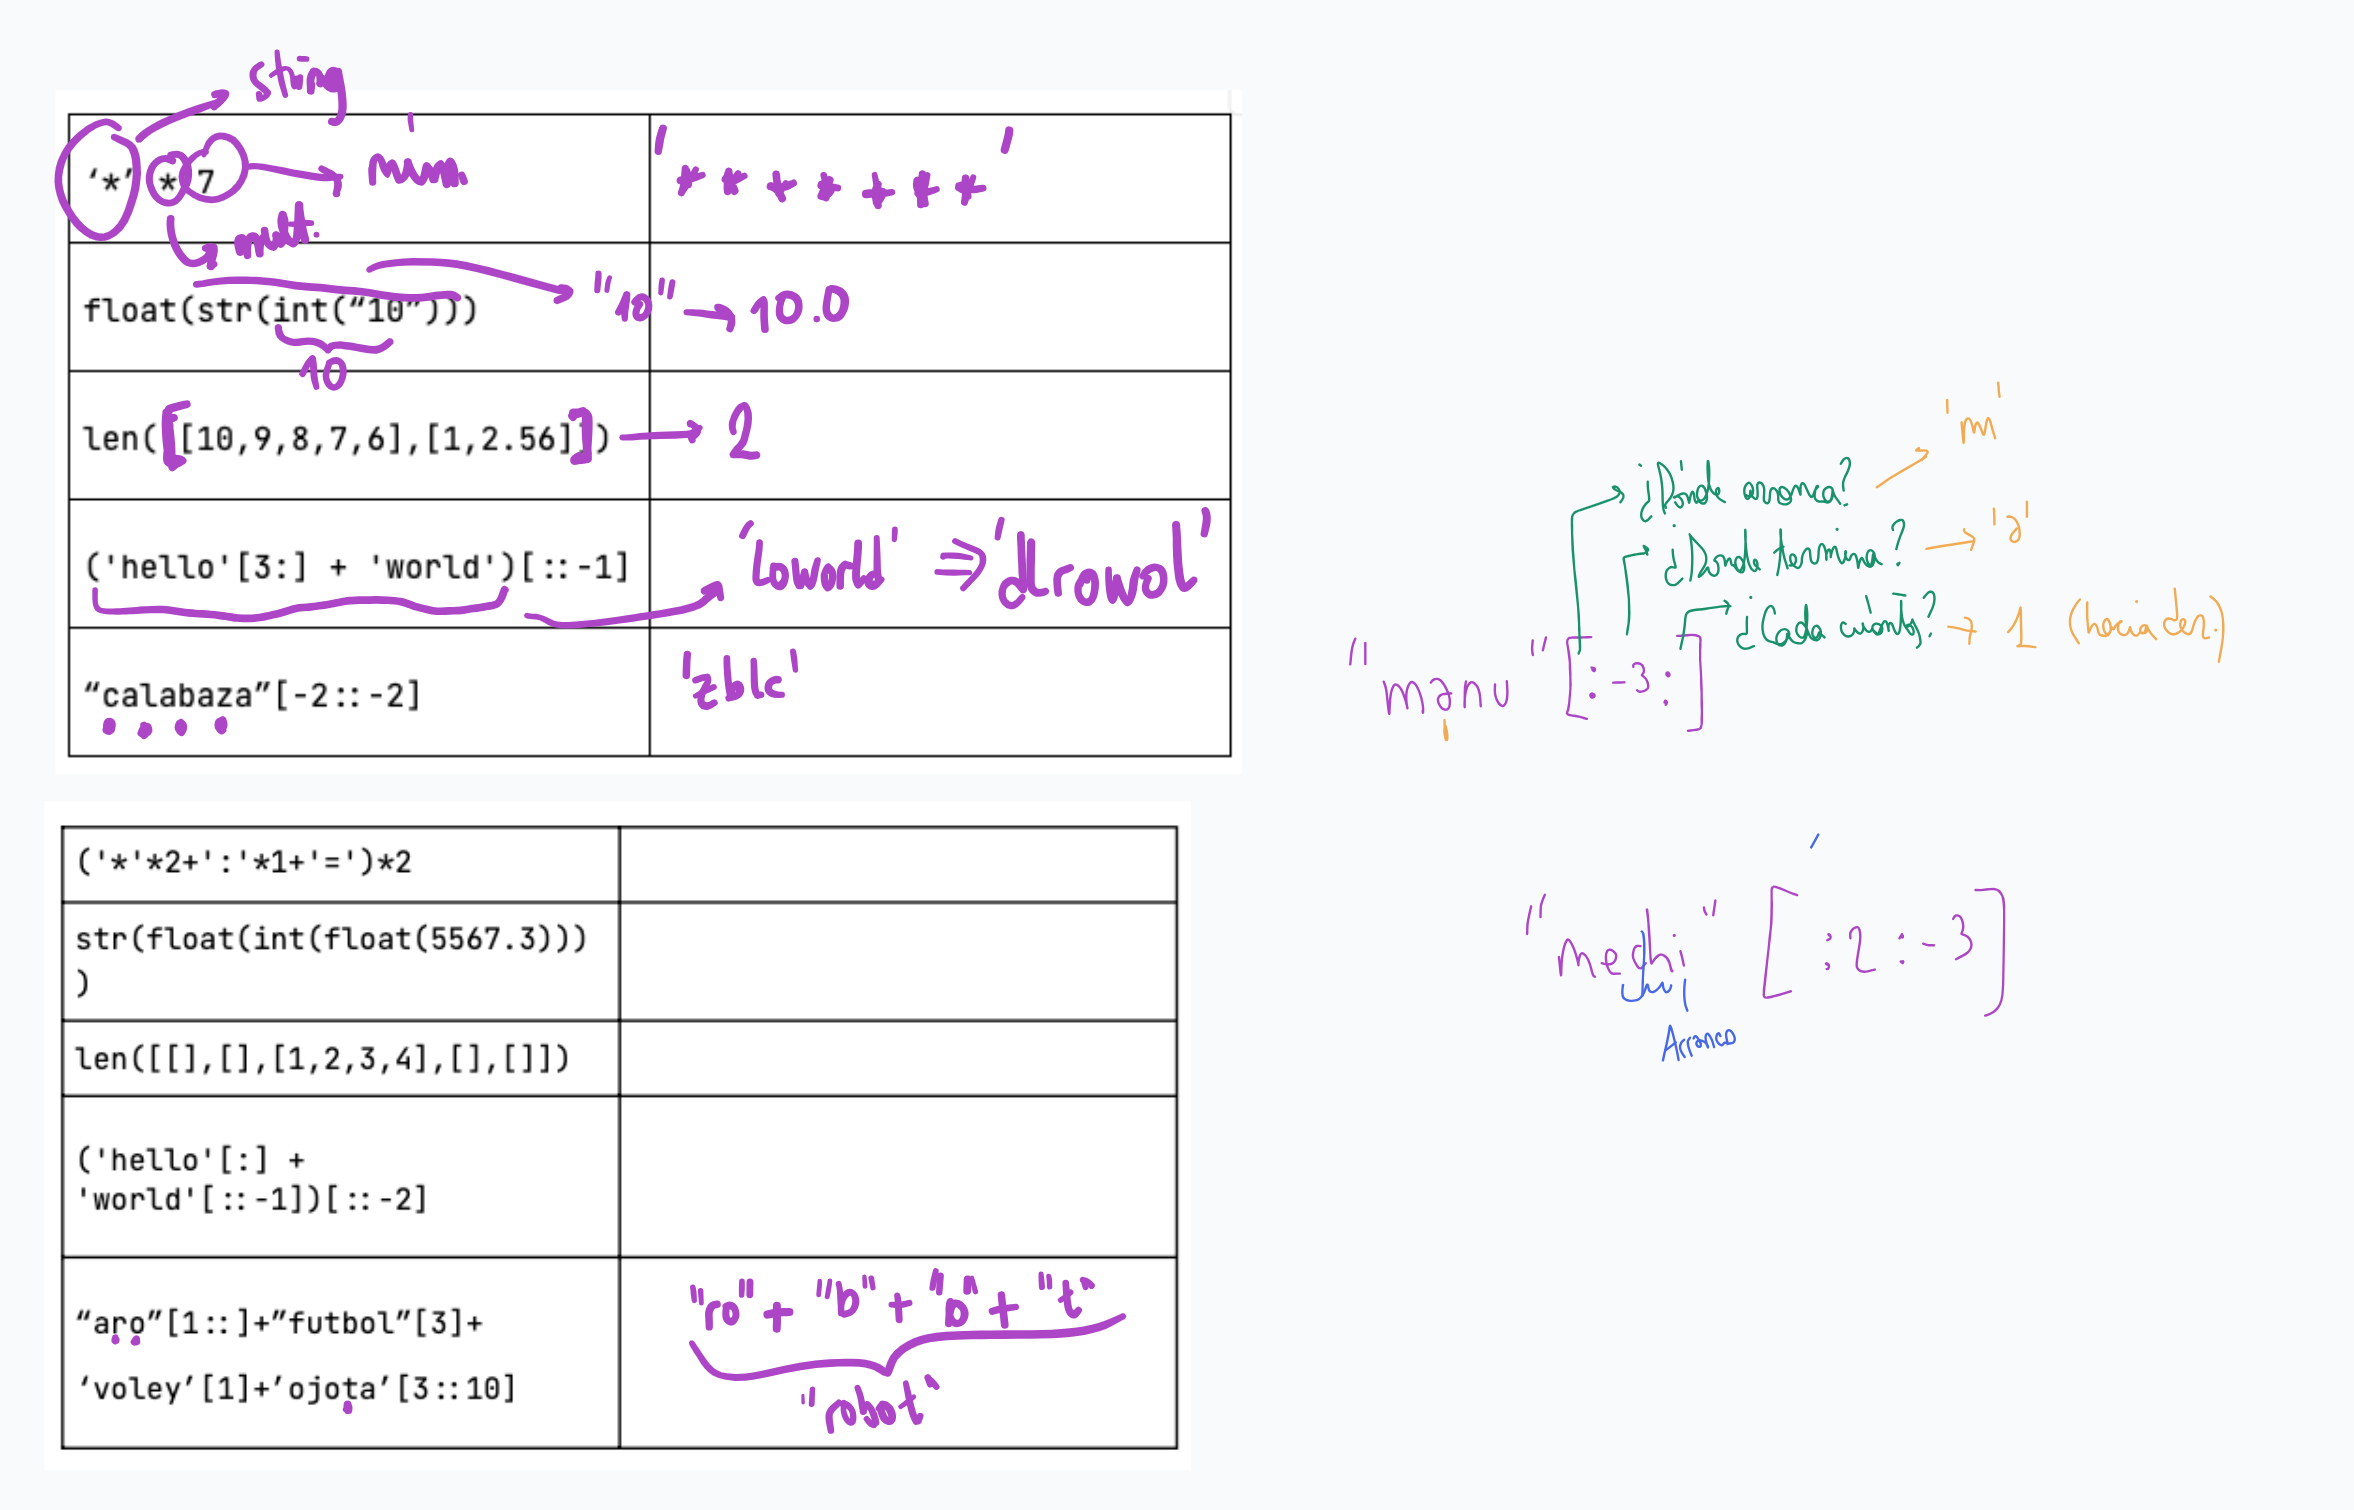 string
‘*’ * 7
núm
' * * * * * * * '
mult.
float(str(int(“10”)))
"10" → 10.0
10
len([[10,9,8,7,6],[1,2.56]]) → 2
('hello'[3:] + 'world')[::-1]
'loworld' ⇒ 'dlrowol'
“calabaza”[-2::-2]
'zblc'
('*'*2+':'*1+'=')*2
str(float(int(float(5567.3)))
)
len([[],[],[1,2,3,4],[],[]])
('hello'[:] +
'world'[::-1])[::-2]
“aro”[1::]+”futbol”[3]+
‘voley’[1]+’ojota’[3::10]
"ro" + "b" + "o" + "t"
"robot"
'm'
¿Dónde arranca?
¿Donde termina? → 'a'
¿Cada cuánto? → 1 (hacia der.)
"manu" [:-3:]
"mechi" [:2:-3]
Arranco